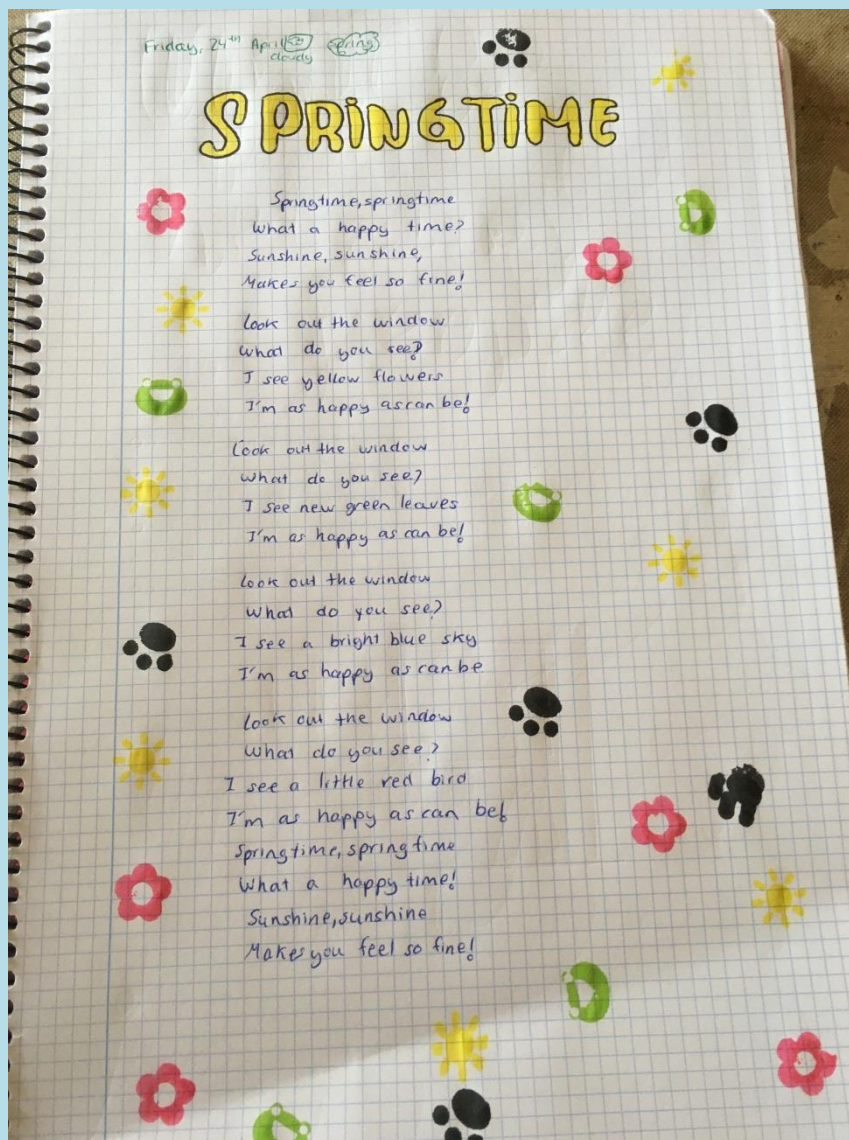 Friday, 24th April cloudy spring
SPRINGTIME
Springtime, springtime
What a happy time?
Sunshine, sunshine,
Makes you feel so fine!
Look out the window
What do you see?
I see yellow flowers
I'm as happy as can be!
Look out the window
What do you see?
I see new green leaves
I'm as happy as can be!
Look out the window
What do you see?
I see a bright blue sky
I'm as happy as can be
Look out the window
What do you see?
I see a little red bird
I'm as happy as can be!
Springtime, springtime
What a happy time!
Sunshine, sunshine
Makes you feel so fine!